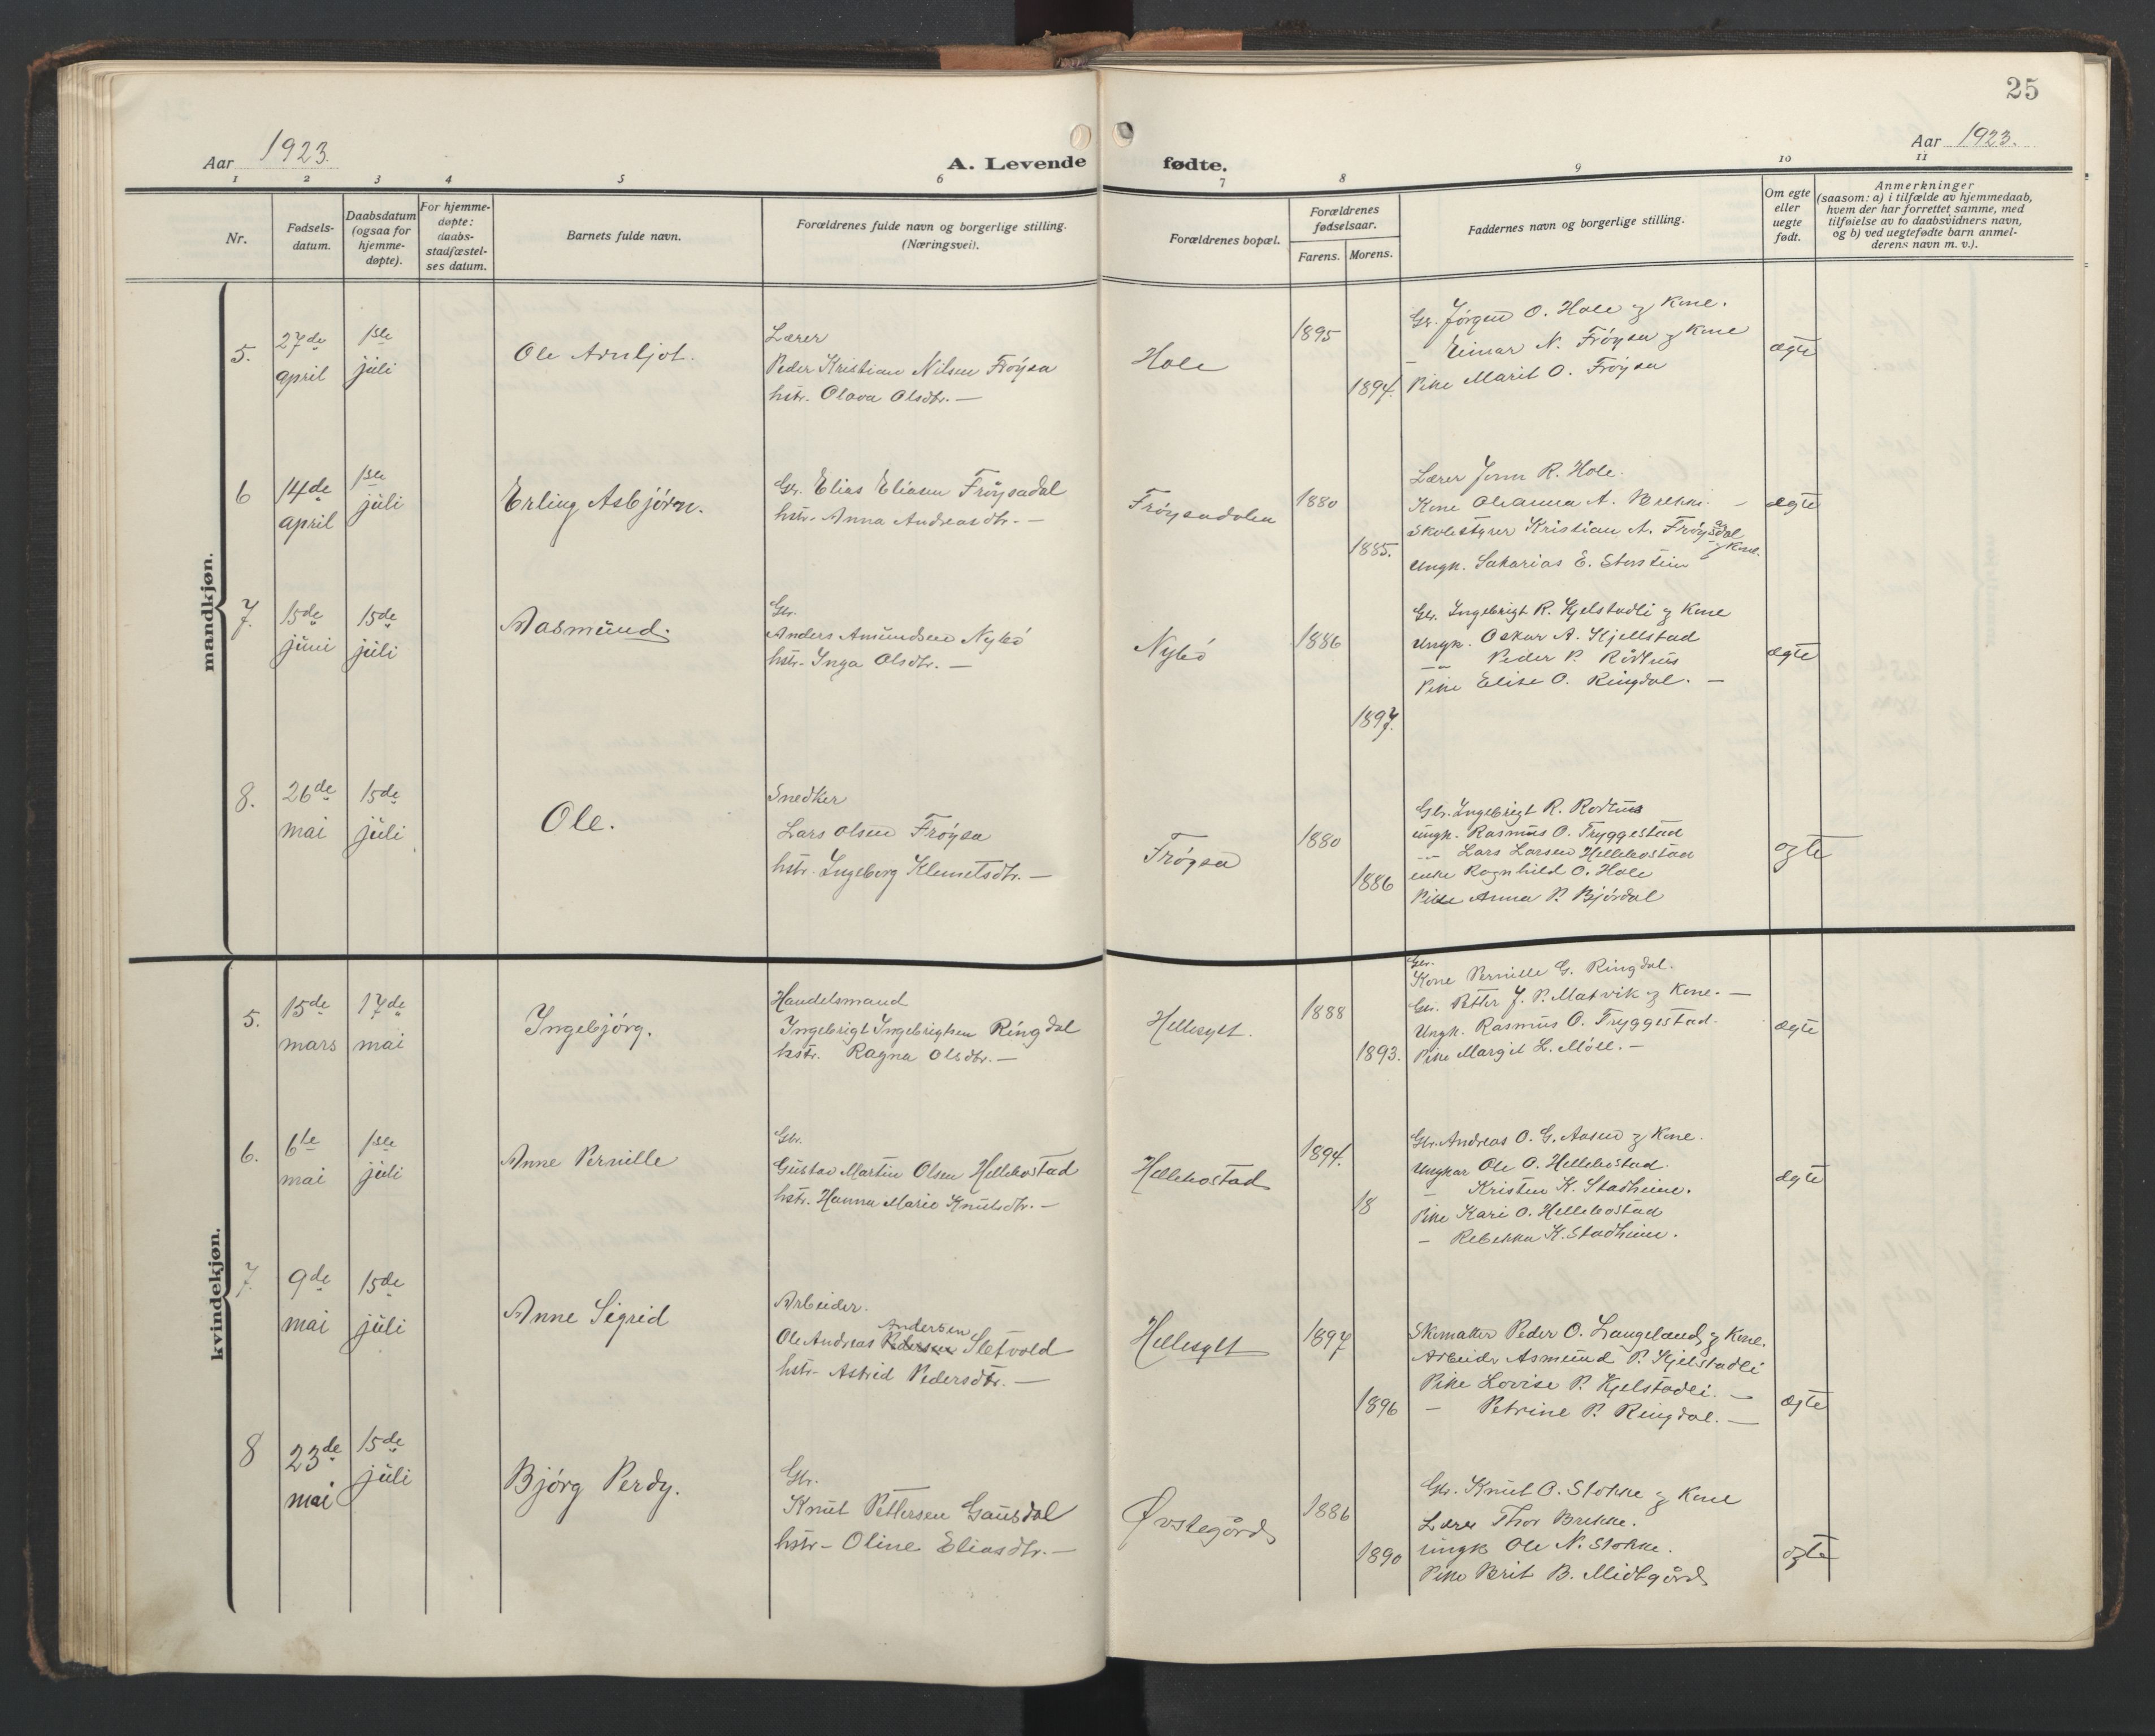 25
Aar 1923.
A. Levende fødte.
Aar 1923.
1 2 3 4 5 6 7 8 9 10 11
Nr.
Fødsels-
datum.
Daabsdatum
(ogsaa for
hjemme-
døpte).
For hjemme-
døpte:
daabs-
stadfæstel-
ses datum.
Barnets fulde navn.
Forældrenes fulde navn og borgerlige stilling.
(Næringsvei).
Forældrenes bopæl.
Forældrenes
fødselsaar.
Farens. Morens.
Faddernes navn og borgerlige stilling.
Om egte
eller
uegte
født.
Anmerkninger
(saasom: a) i tilfælde av hjemmedaab,
hvem der har forrettet samme, med
tilføielse av to daabsvidners navn,
og b) ved uegtefødte barn anmel-
derens navn m. v.).
mandkjøn.
5.
27de
april
1ste
juli
Ole Arnljot.
Lærer
Peder Kristian Nilsen Frøysa
hstr. Olava Olsdtr. —
Hole
1895
1894.
Gbr. Jørgen O. Hole og Kone.
— Einar N. Frøysa og Kone
Pike Marit O. Frøysa
ægte
6
14de
april
1ste
juli
Erling Asbjørn.
Gbr. Elias Eliasen Frøysadal
hstr. Anna Andreasdtr. —
Frøysadalen
1880
1885.
Lærer Jonn R. Hole.
Kone Olianna A. Brekke. —
Skolestyrer Kristian A. Frøysadal
og Kone.
Ungk. Sakarias E. Storstein
ægte
7.
15de
juni
15de
juli
Aasmund.
Gbr.
Anders Amundsen Nybø
hstr. Inga Olsdtr. —
Nybø
1886
1897.
Gbr. Ingebrigt R. Kjelstadli og Kone
Ungk. Oskar A. Kjellstad
— Peder P. Rødhus
Pike Elise O. Ringdal. —
ægte
8.
26de
mai
15de
juli
Ole.
Snedker
Lars Olsen Frøysa
hstr. Ingeborg Klemetsdtr. —
Frøysa
1880
1886
Gbr. Ingebrigt R. Rødhus
ungk. Rasmus O. Tryggestad
— Lars Larsen Hellebostad
enke Ragnhild O. Hole
Pike Anna P. Bjørdal
ægte
kvindekjøn.
5.
15de
mars
17de
mai
Ingebjørg.
Handelsmand
Ingebrigt Ingebrigtsen Ringdal
hstr. Ragna Olsdtr. —
Hellesylt.
1888
1893.
Gbr.
Kone Pernille G. Ringdal.
Gbr. Petter J. P. Matvik og Kone. —
Ungk. Rasmus O. Tryggestad.
Pike Margit L. Møll. —
ægte
6.
6te
mai
1ste
juli
Anne Pernille
Gbr.
Gustav Martin Olsen Hellebostad
hstr. Hanna Marie Knutsdtr. —
Hellebostad
1894.
18
Gbr. Andreas O. G. Aasen og Kone.
Ungkar Ole O. Hellebostad.
— Kristen K. Stadheim.
Pike Kari O. Hellebostad
— Rebekka K. Stadheim.
ægte
7.
9de
mai
15de
juli
Anne Sigrid
Arbeider.
Andersen
Ole Andreas Pedersen Sletvold
hstr. Astrid Pedersdtr. —
Hellesylt
1897
1896
Skomaker Peder O. Langeland og Kone.
Arbeider Asmund P. Kjelstadli
Pike Lovise P. Kjelstadli. —
— Petrine P. Ringdal. —
ægte
8
23de
mai
15de
juli
Bjørg Perdy.
Gbr.
Knut Pettersen Gausdal
hstr. Oline Eliasdtr. —
Øvstegård
1886
1890
Gbr. Knut O. Stokke og Kone
Lærer Thor Brekke.
ungk Ole N. Stokke.
Pike Brit B. Midtgård
ægte